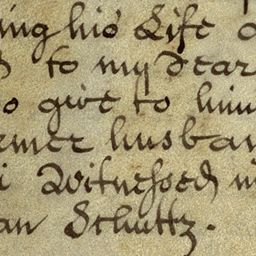 ing his Life
to my Dear
o give to him
rmer husban
i Witnesseth
an Schultz.